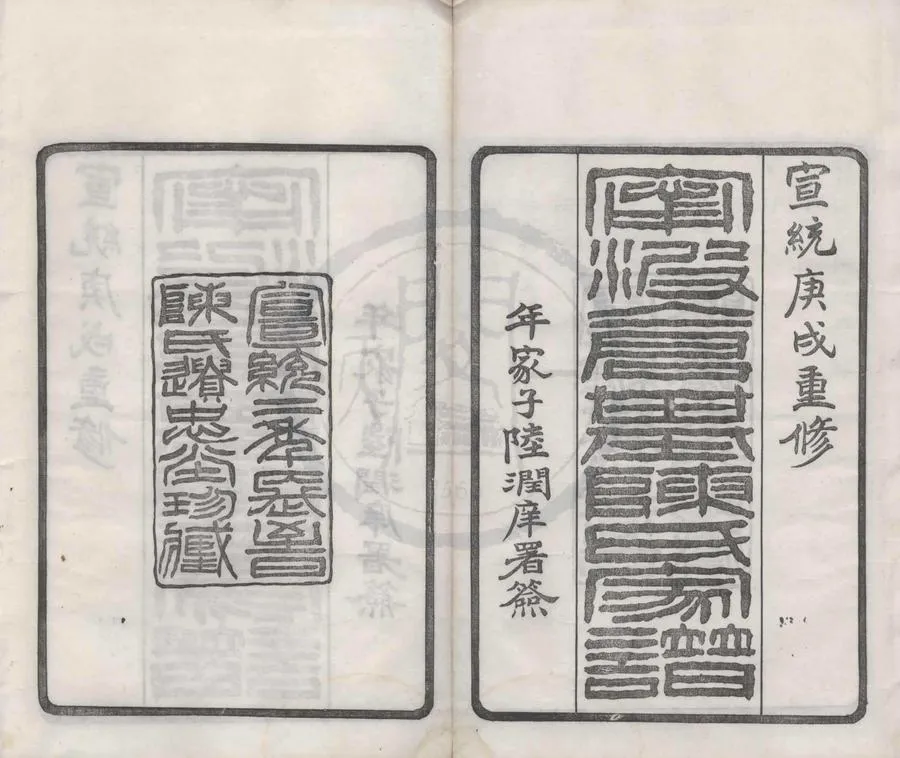 宣統庚戌重修
寧波倉基陳氏家譜
年家子陸潤庠署簽
宣統二年
陳氏遺忠堂珍藏